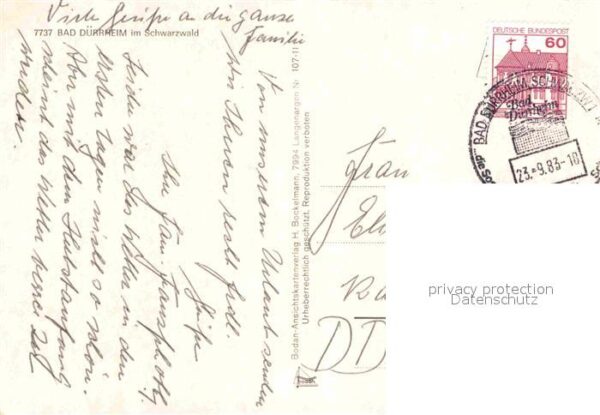 Viele Grüße an die ganze
Familie
7737 BAD DÜRRHEIM im Schwarzwald
Von unserem Urlaub senden
wir Ihnen recht herzl.
Grüße
Ihre Fam.
Leider war das Wetter in den
letzten Tagen nicht so schön.
Aber mit dem Herbstanfang
scheint das Wetter besser zu
werden.
Bodan-Ansichtskartenverlag H. Bockelmann, 7994 Langenargen Nr. 107-11
Urheberrechtlich geschützt. Reproduktion verboten
DEUTSCHE BUNDESPOST
60
BAD DÜRRHEIM, SCHWARZW 1
Bad
Dürrheim
23.-9.83-10
die So
DD
privacy protection
Datenschutz